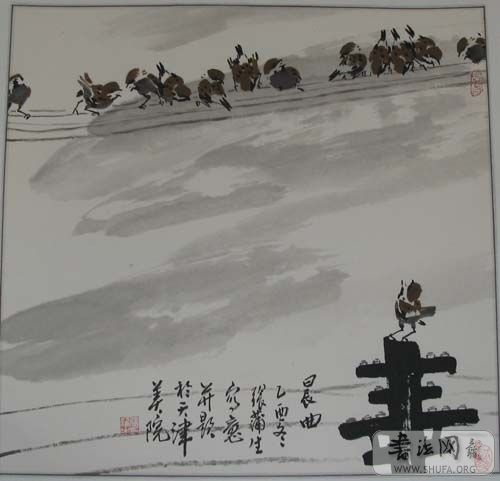 晨曲
乙酉冬
张蒲生
写意
并题
於天津
美院
书法网
WWW.SHUFA.ORG